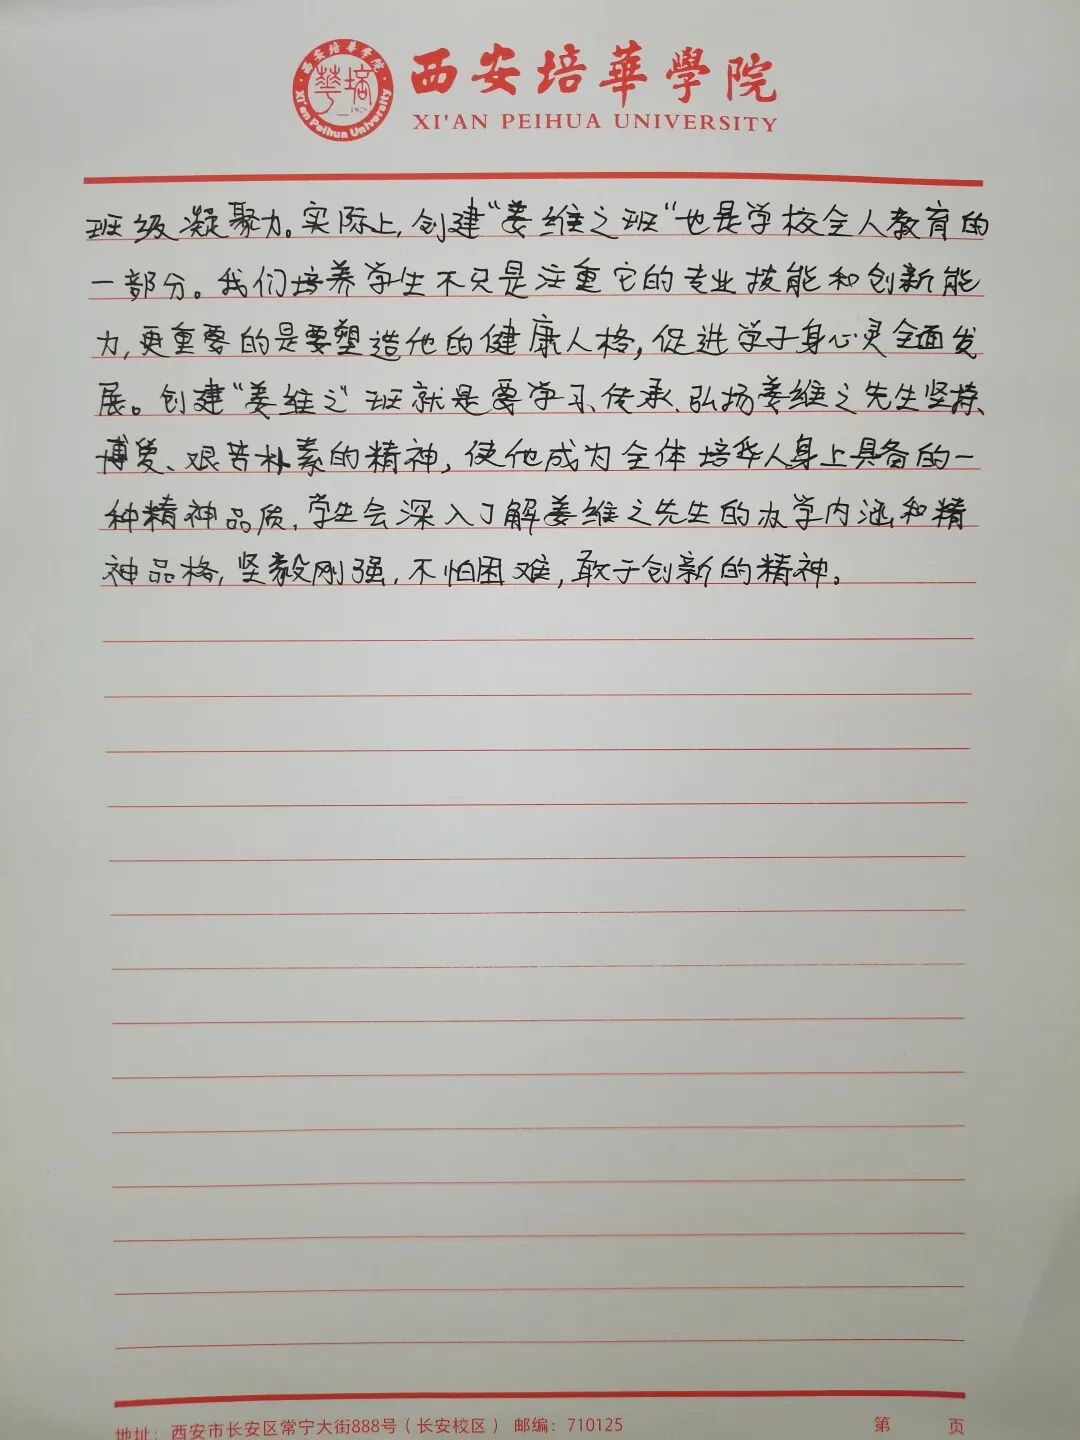 西安培華學院
XI'AN PEIHUA UNIVERSITY
西安培華學院
Xi'an Peihua University
班级凝聚力。实际上,创建"姜维之班"也是学校全人教育的
一部分。我们培养学生不只是注重它的专业技能和创新能
力,更重要的是要塑造他的健康人格,促进学子身心灵全面发
展。创建"姜维之"班就是要学习、传承、弘扬姜维之先生坚持、
博爱、艰苦朴素的精神,使他成为全体培华人身上具备的一
种精神品质,学生会深入了解姜维之先生的办学内涵和精
神品格,坚毅刚强,不怕困难,敢于创新的精神。
地址:西安市长安区常宁大街888号(长安校区) 邮编:710125 第 页